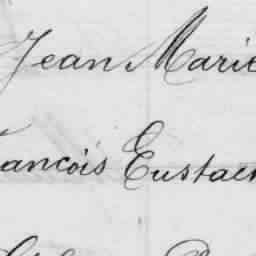 Jean Marie
ancois Eustach